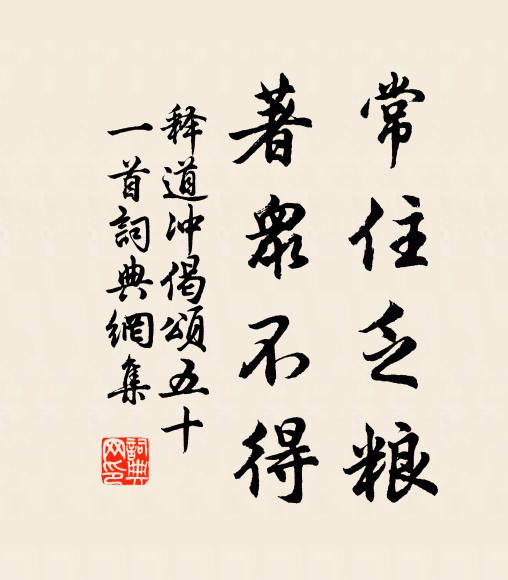 常住乏粮
著眾不得
释道沖偈頌五十
一首詞典網集
詞典網印